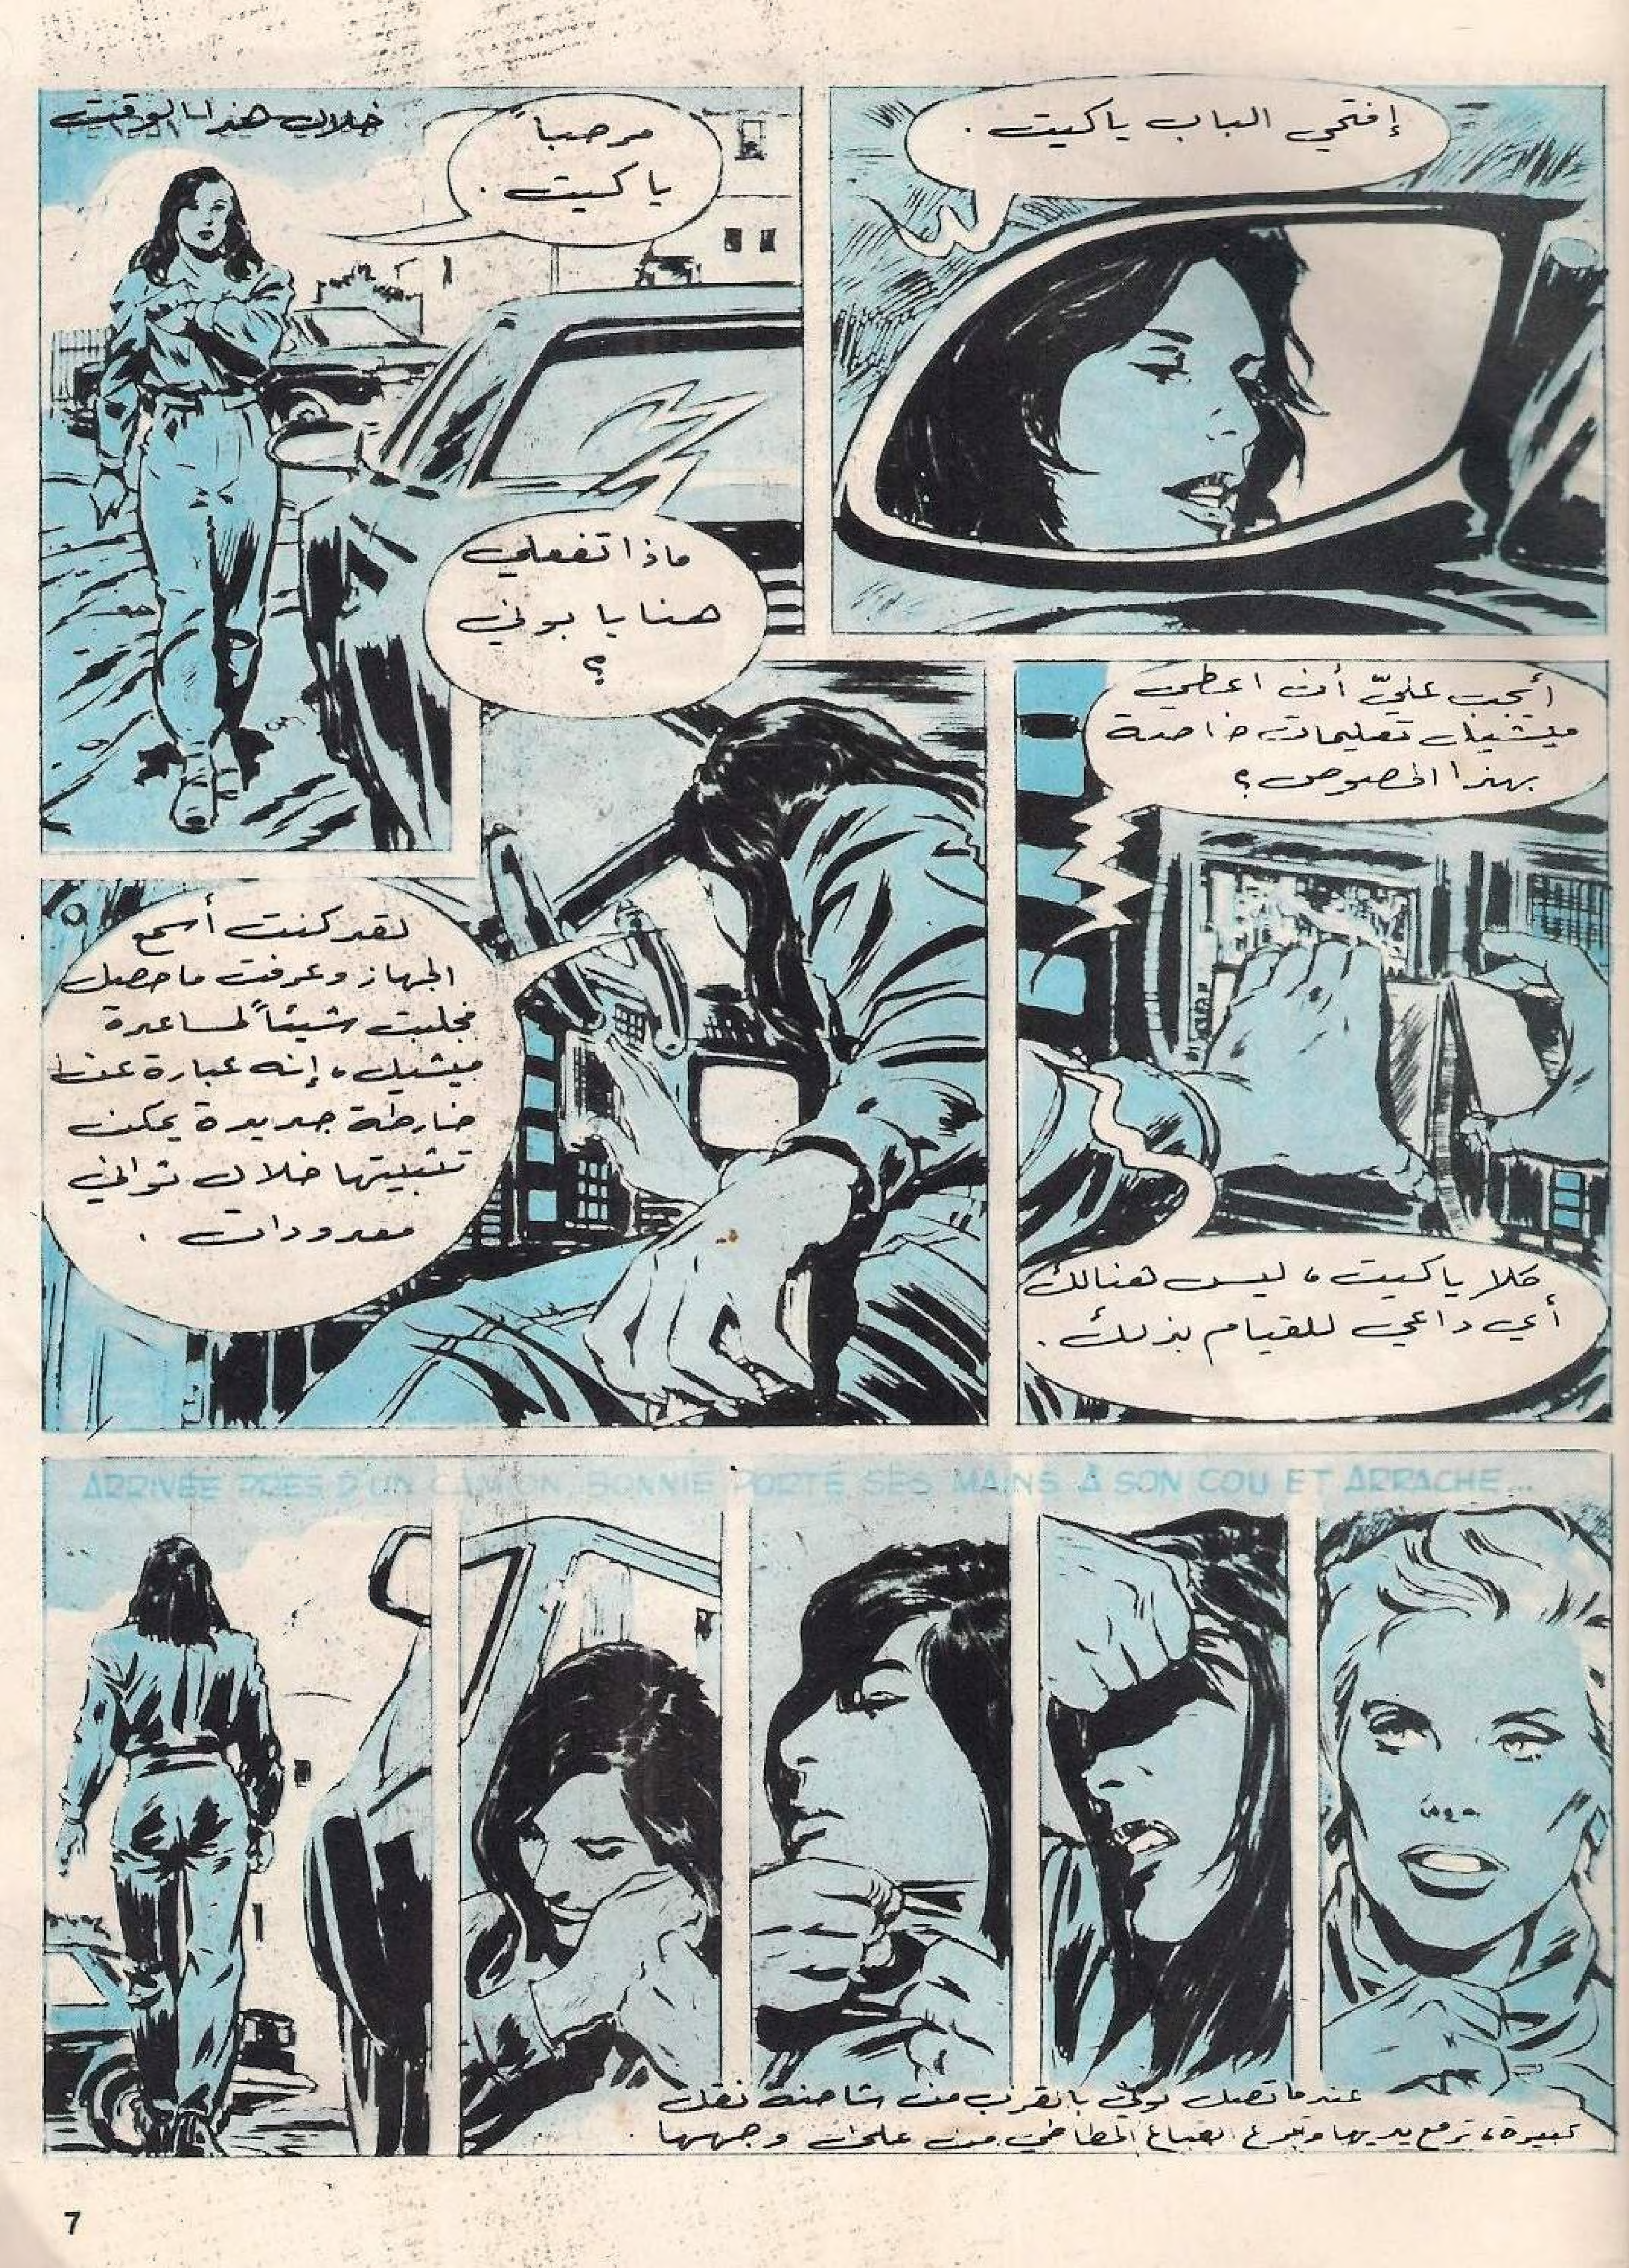 إفتحي الباب ياكيت .
خلال هذا الوقت
مرحباً
ياكيت .
ماذا تفعلي
هنا يا بوني
؟
أيجب عليّ أن اعطي
ميشيل تعليمات خاصة
بهذا الخصوص ؟
كلا ياكيت ، ليس هنالك
أي داعي للقيام بذلك .
لقد كنت أسمع
الجهاز وعرفت ما حصل
فجلبت شيئاً لمساعدة
ميشيل ، إنه عبارة عن
خارطة جديدة يمكن
تثبيتها خلال ثواني
معدودات .
ARRIVÉE PRÈS D'UN CAMION, BONNIE PORTE SES MAINS À SON COU ET ARRACHE...
عندما تصل بوني بالقرب من شاحنة نقل
كبيرة ، ترفع يديها وتنزع القناع المطاطي من على وجهها .
7